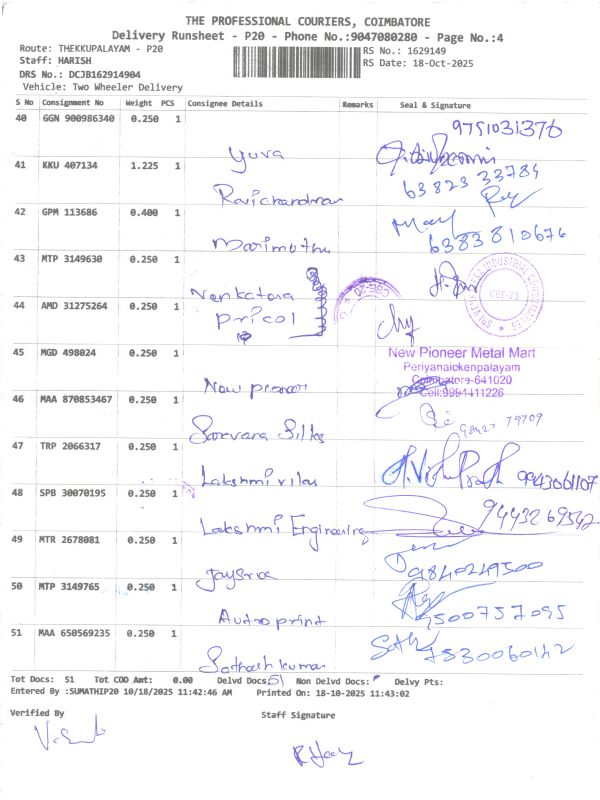 THE PROFESSIONAL COURIERS, COIMBATORE
Delivery Runsheet - P20 - Phone No.:9047080280 - Page No.:4
Route: THEKKUPALAYAM - P20 RS No.: 1629149
Staff: HARISH RS Date: 18-Oct-2025
DRS No.: DCJB162914904
Vehicle: Two Wheeler Delivery
S No Consignment No Weight PCS Consignee Details Remarks Seal & Signature
40 GGN 900986340 0.250 1 9751031376
Yuva
41 KKU 407134 1.225 1 63823 33784
Ravichandran
42 GPM 113686 0.400 1 6383810676
Marimuthu
43 MTP 3149630 0.250 1
Venkatara
44 AMD 31275264 0.250 1 Pricol
45 MGD 498024 0.250 1 New Pioneer Metal Mart
Periyanaickenpalayam
Coimbatore-641020
Cell:9994411226
New pioneer
46 MAA 870853467 0.250 1 98427 79709
Saravana Silks
47 TRP 2066317 0.250 1 9943061107
Lakshmi vilas
48 SPB 30070195 0.250 1 9443269542
Lakshmi Engineering
49 MTR 2678081 0.250 1 9840249500
Jaysree
50 MTP 3149765 0.250 1 9500757095
Autroprint
51 MAA 650569235 0.250 1 7530060142
Sathash kumar
Tot Docs: 51 Tot COD Amt: 0.00 Delvd Docs: 51 Non Delvd Docs: Delvy Pts:
Entered By :SUMATHIP20 10/18/2025 11:42:46 AM Printed On: 18-10-2025 11:43:02
Verified By Staff Signature